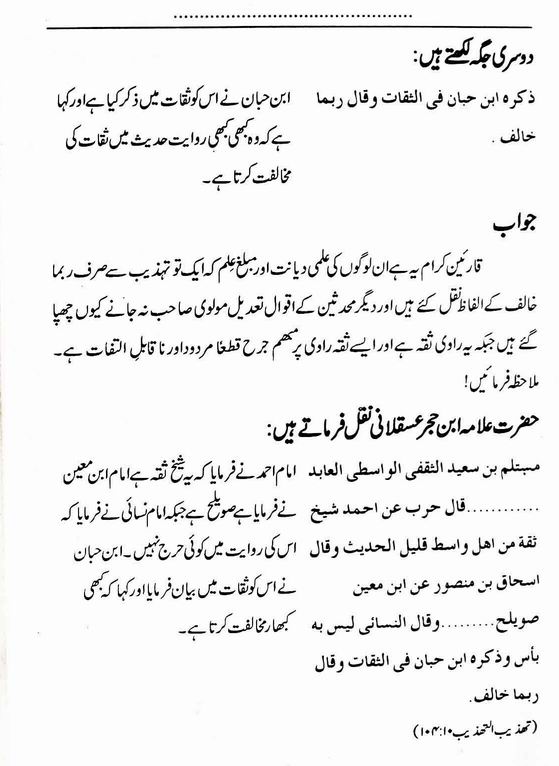 دوسری جگہ لکھتے ہیں:
ذکره ابن حبان فی الثقات وقال ربما
خالف .
ابن حبان نے اس کو ثقات میں ذکر کیا ہے اور کہا
ہے کہ وہ کبھی کبھی روایت حدیث میں ثقات کی
مخالفت کرتا ہے۔
جواب
قارئین کرام یہ ہے ان لوگوں کی علمی دیانت اور مبلغ علم کہ ایک تو تہذیب سے صرف ربما
خالف کے الفاظ نقل کئے ہیں اور دیگر محدثین کے اقوال تعدیل مولوی صاحب نہ جانے کیوں چھپا
گئے ہیں جبکہ یہ راوی ثقہ ہے اور ایسے ثقہ راوی پر مبہم جرح قطعًا مردود اور ناقابل التفات ہے۔
ملاحظہ فرمائیں!
حضرت علامہ ابن حجر عسقلانی نقل فرماتے ہیں:
مستلم بن سعید الثقفی الواسطی العابد
............قال حرب عن احمد شیخ
ثقة من اهل واسط قلیل الحدیث وقال
اسحاق بن منصور عن ابن معین
صویلح.........وقال النسائی لیس به
بأس وذکره ابن حبان فی الثقات وقال
ربما خالف.
امام احمد نے فرمایا کہ یہ شیخ ثقہ ہے امام ابن معین
نے فرمایا ہے صویلح ہے جبکہ امام نسائی نے فرمایا کہ
اس کی روایت میں کوئی حرج نہیں۔ ابن حبان
نے اس کو ثقات میں بیان فرمایا اور کہا کہ کبھی
کبھار مخالفت کرتا ہے۔
(تہذیب التہذیب۱۰:۱۰۴)